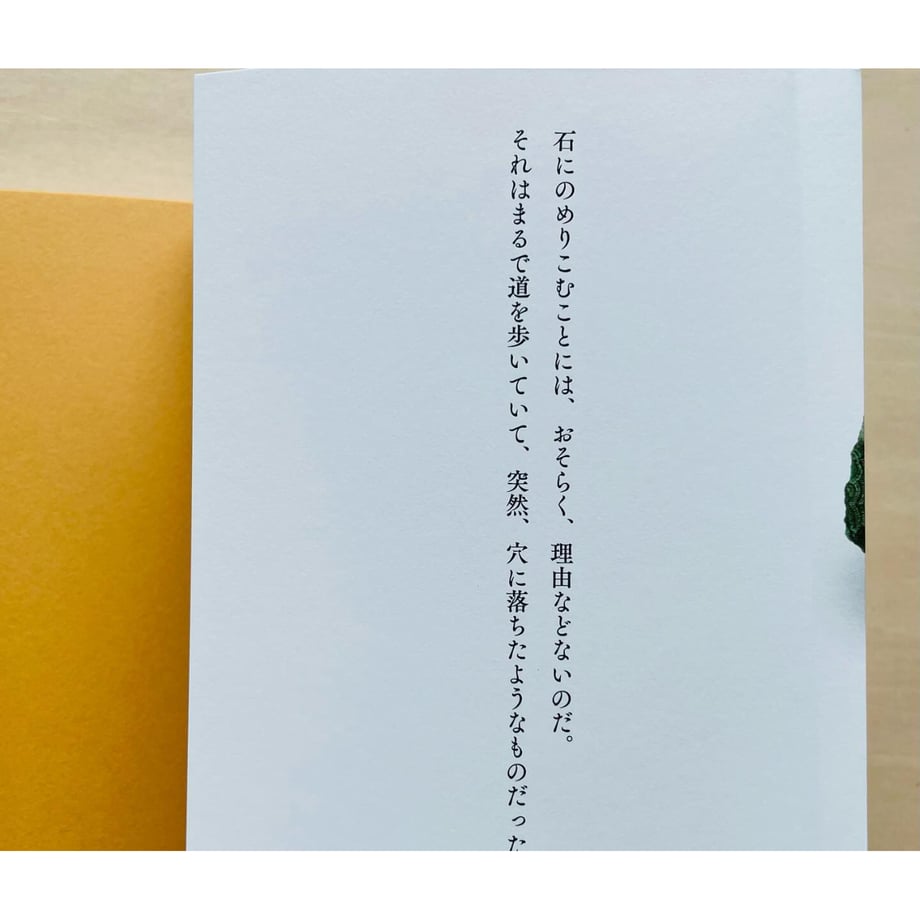 石にのめりこむことには、おそらく、理由などないのだ。
それはまるで道を歩いていて、突然、穴に落ちたようなものだった